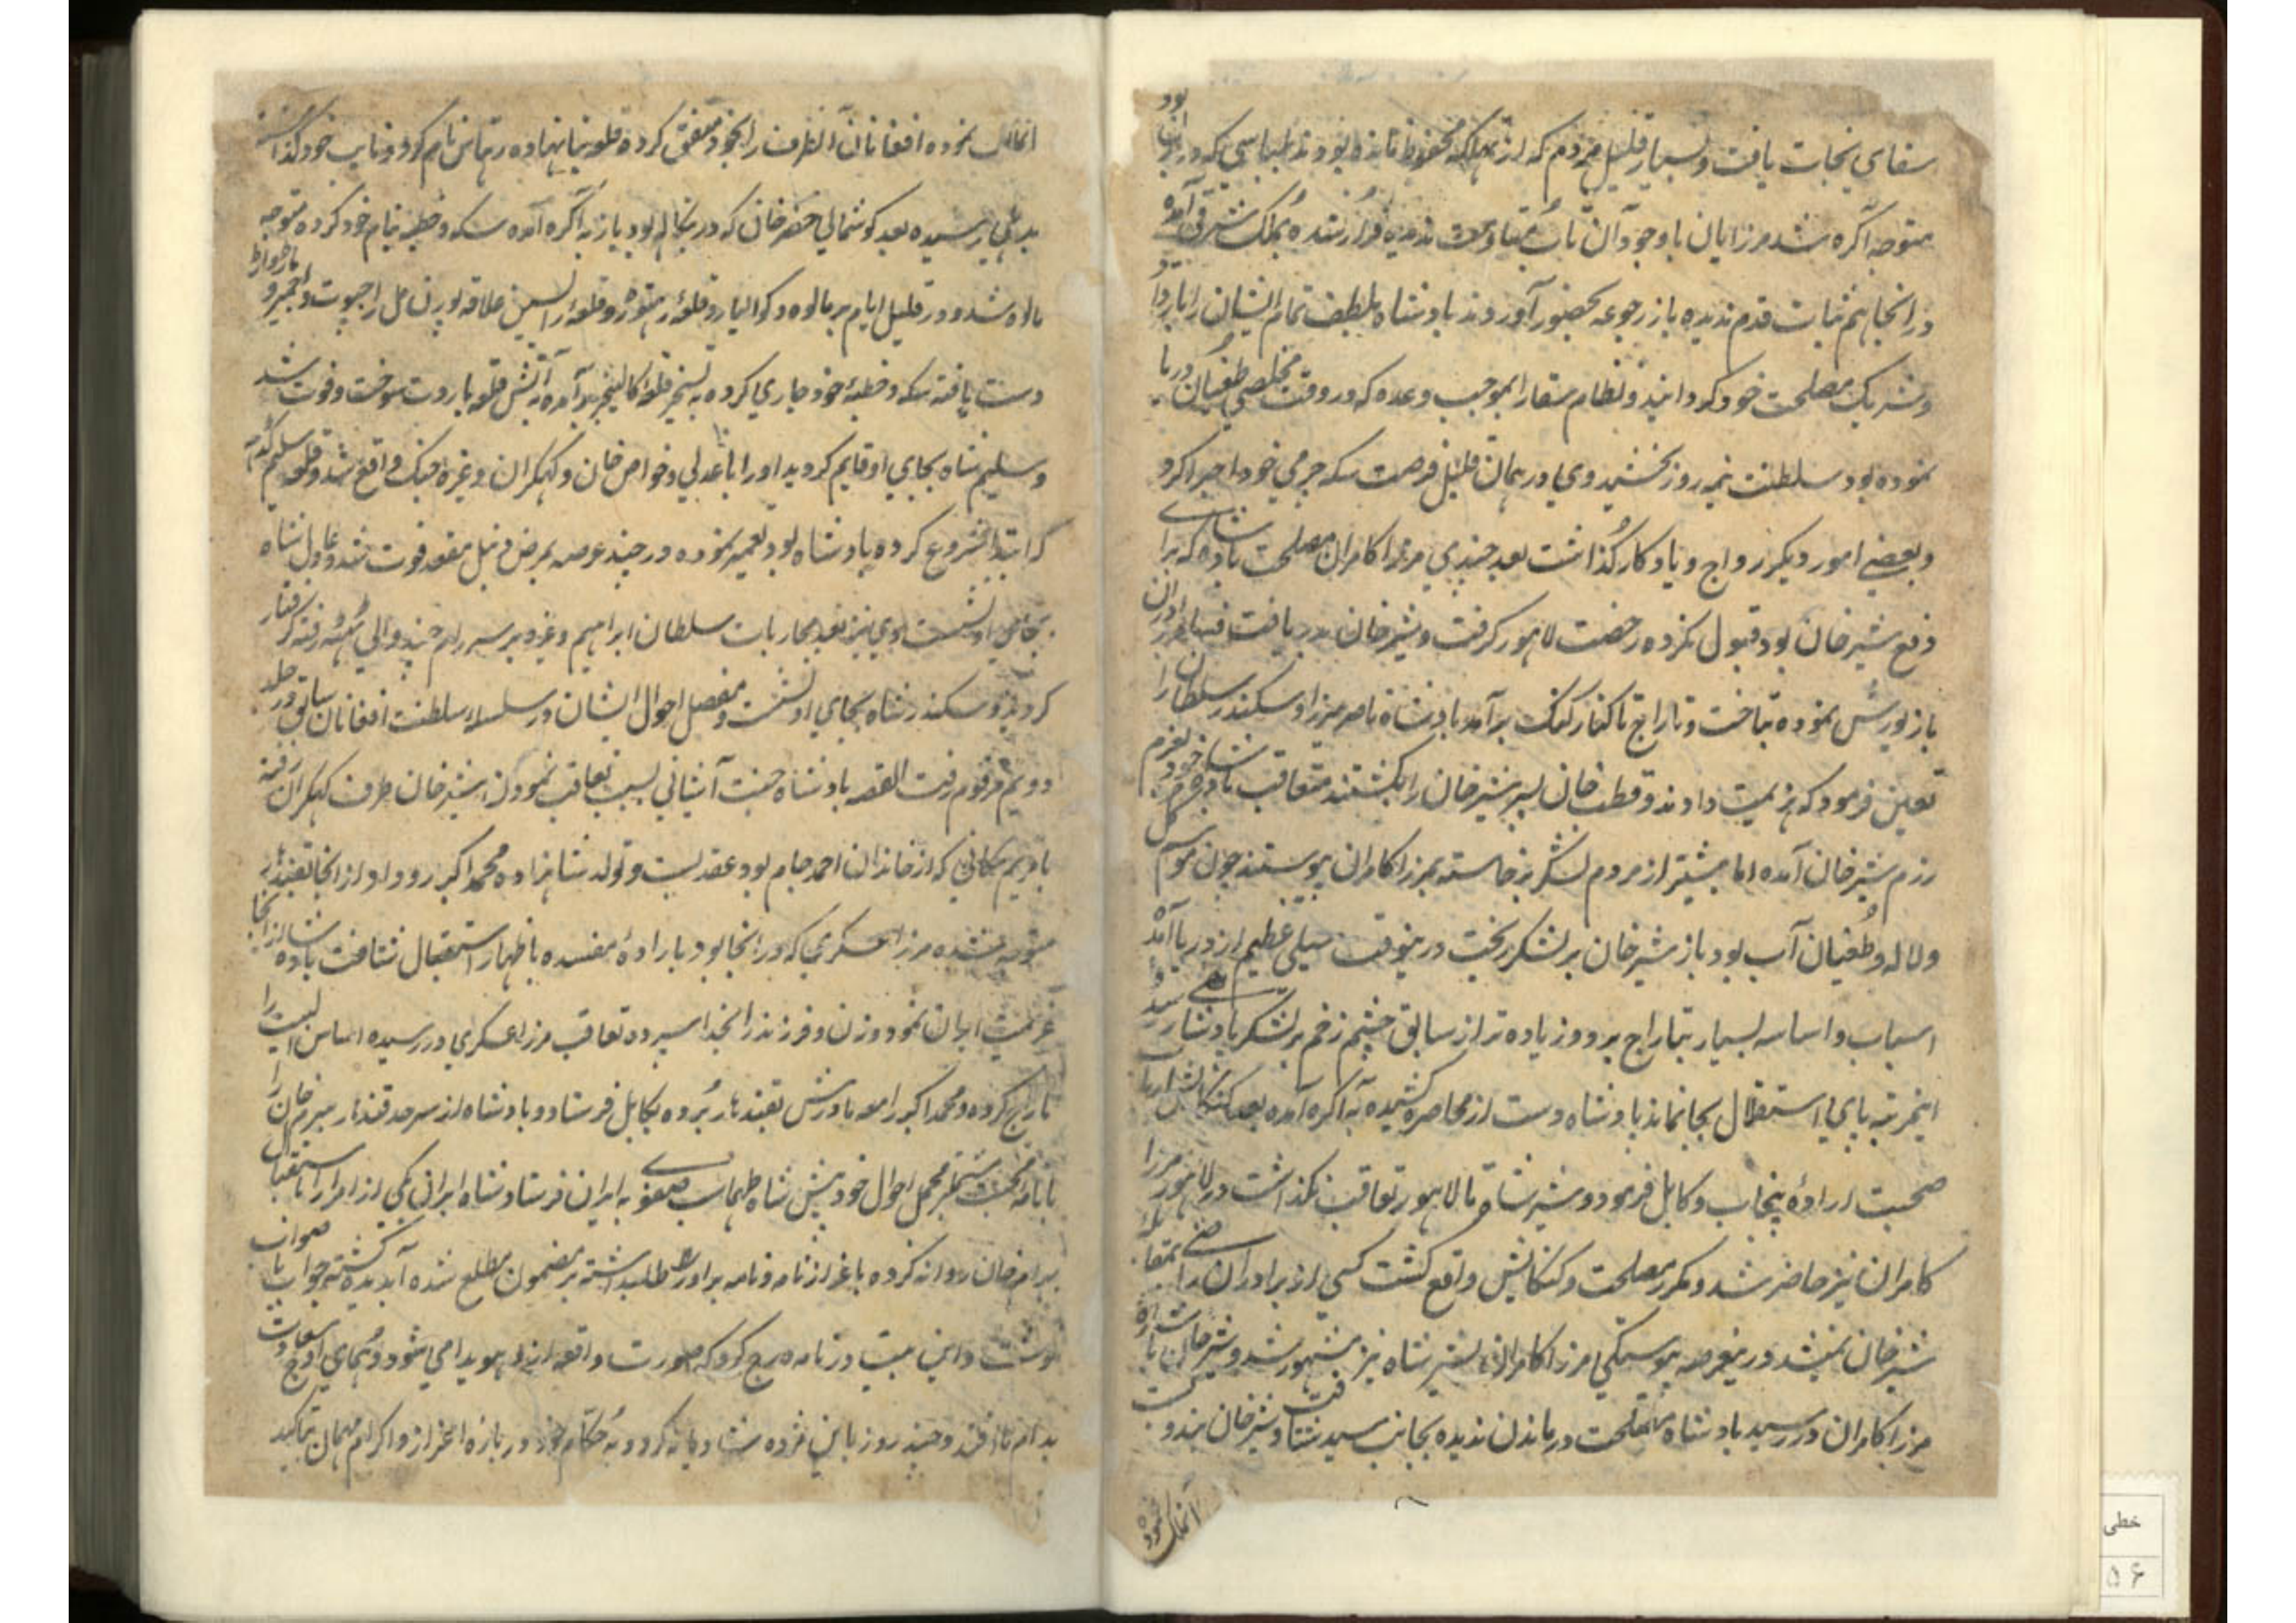 سقای نجات یافت و بسیار قلیل مردم که از مهلکه محفوظ مانده بودند که در آن بود
متوجه آگره شد مرزایان باوجود آن تاب مقاومت ندیده فرار شده بملک شرقی آمده
در انجا هم ثبات قدم ندیده باز رجوعه بحضور آوردند بادشاه بلطف تمام ایشان را
و شریک مصلحت خود کردانید و نظام سقا را بموجب وعده که در وقت مخلصی طغیان دریا
نموده بود سلطنت نیم روز بخشید وی در همان قلیل فرصت سکه چرمی خود اجرا کرد
و بعضی امور دیکر رواج و یادکار کذاشت بعد چندی مرزا کامران مصلحت بادشاهی که برا
دفع شیر خان بود قبول نکرده رخصت لاهور کرفت و شیر خان بدریافت برادران
باز یورش نموده بتاخت و تاراج تا کنار کنک برآمد بادشاه ناصر مرزا و سکندر سلطان را
تعین فرمود که هزیمت دادند و قطب خان پسر شیر خان را بکشتند متعاقب بادشاه خود بعزم
رزم شیر خان آمده اما بیشتر از مردم لشکر برخاسته بمرزا کامران پیوستند چون موسم کل
و لاله و طغیان آب بود باز شیر خان بر لشکر ریخت درینوقت سیلی عظیم از دریا آمد
اسباب و اساسه بسیار بتاراج برد و زیاده تر از سابق چشم زخم بر لشکر بادشاهی رسید
اینمرتبه پای استقلال بجا نماند بادشاه دست از محاصره کشیده به آکره آمده بعد کنکاش
صحبت اراده پنجاب و کابل فرمود و شیر شاه تا لاهور تعاقب نکذاشت در لاهور مرزا
کامران نیز حاضر شد و مکرر مصلحت و کنکایش واقع کشت کسی از برادران راضی بمقابله
شیر خان نمیشد درینعرصه پیوستکی مرزا کامران بشیر شاه نیز مشهور شد و شیر خان
مرزا کامران در رسید بادشاه مصلحت در ماندن ندیده بجانب سند شتافت و شیر خان بندوبست
آنملک نموده
آنملک نموده افغانان آنطرف را بخود متفق کرده قلعه بنا نهاده رهتاس نام کرد و نایب خود کذاشته
بدهلی رسیده بعد کوشمالی خضر خان که در بنکاله بود باز به آکره آمده سکه و خطبه بنام خود کرده متوجه
مالوه شد و در قلیل ایام بر مالوه و کوالیار و قلعه رنتهور و قلعه رایسین علاقه پورنمل راجپوت و اجمیر و مارواڑ
دست یافته سکه و خطبه خود جاری کرده به تسخیر قلعه کالینجر برآمده آتش قلعه باروت سوخت و فوت شد
و سلیم شاه بجای او قایم کردید او را با عدلی و خواص خان و کهکران و غیره جنک واقع شد و قلعه سلیم کده
که ابتدا شروع کرده بادشاه بود تعمیر نموده در چند عرصه بمرض دنبل مقعد فوت شد و عادل شاه
بجای او نشست وی نیز بعد محاربات سلطان ابراهیم و غیره بر سر رام چند والی رفته کرفتار
کردید و سکندر شاه بجای او نشست و مفصل احوال ایشان در سلسله سلطنت افغانان سابق در جلد
دویم مرقوم رفت القصه بادشاه جنت آشیانی بسبب تعاقب نمودن شیر خان طرف کهکران رفته
با مریم مکانی که از خاندان احمد جام بود عقد بست و تولد شاهزاده محمد اکبر رو داد از انجا بقندهار
متوجه شده مرزا عسکری که در انجا بود باراده مفسده باظهار استقبال شتافت بادشاه از انجا
عزیمت ایران نمود و زن و فرزند را بخدا سپرده تعاقب مرزا عسکری در رسیده اساس البیت را
تاراج کرده و محمد اکبر را مع مادرش بقندهار برده بکابل فرستاد و بادشاه از سرحد قندهار بیرم خان را
با نامه محبت مشتمل بر مجمل احوال خود پیش شاه طهماسب صفوی به ایران فرستاد شاه ایران یکی از امرا را باستقبال
بیرام خان روانه کرده باعزاز نامه و نامه بر اورا طلب داشته بر مضمون مطلع شده آبدیده کشته جواب با صواب
نوشت و این بیت در نامه درج کرد که صورت واقعه ازو هویدا می شود همای اوج سعادت
بدام ما افتد و چند روز باین مژده شادیانه کرد و به حکام خود در باره اعزاز و اکرام مهمان تاکید
خطی
۵۶